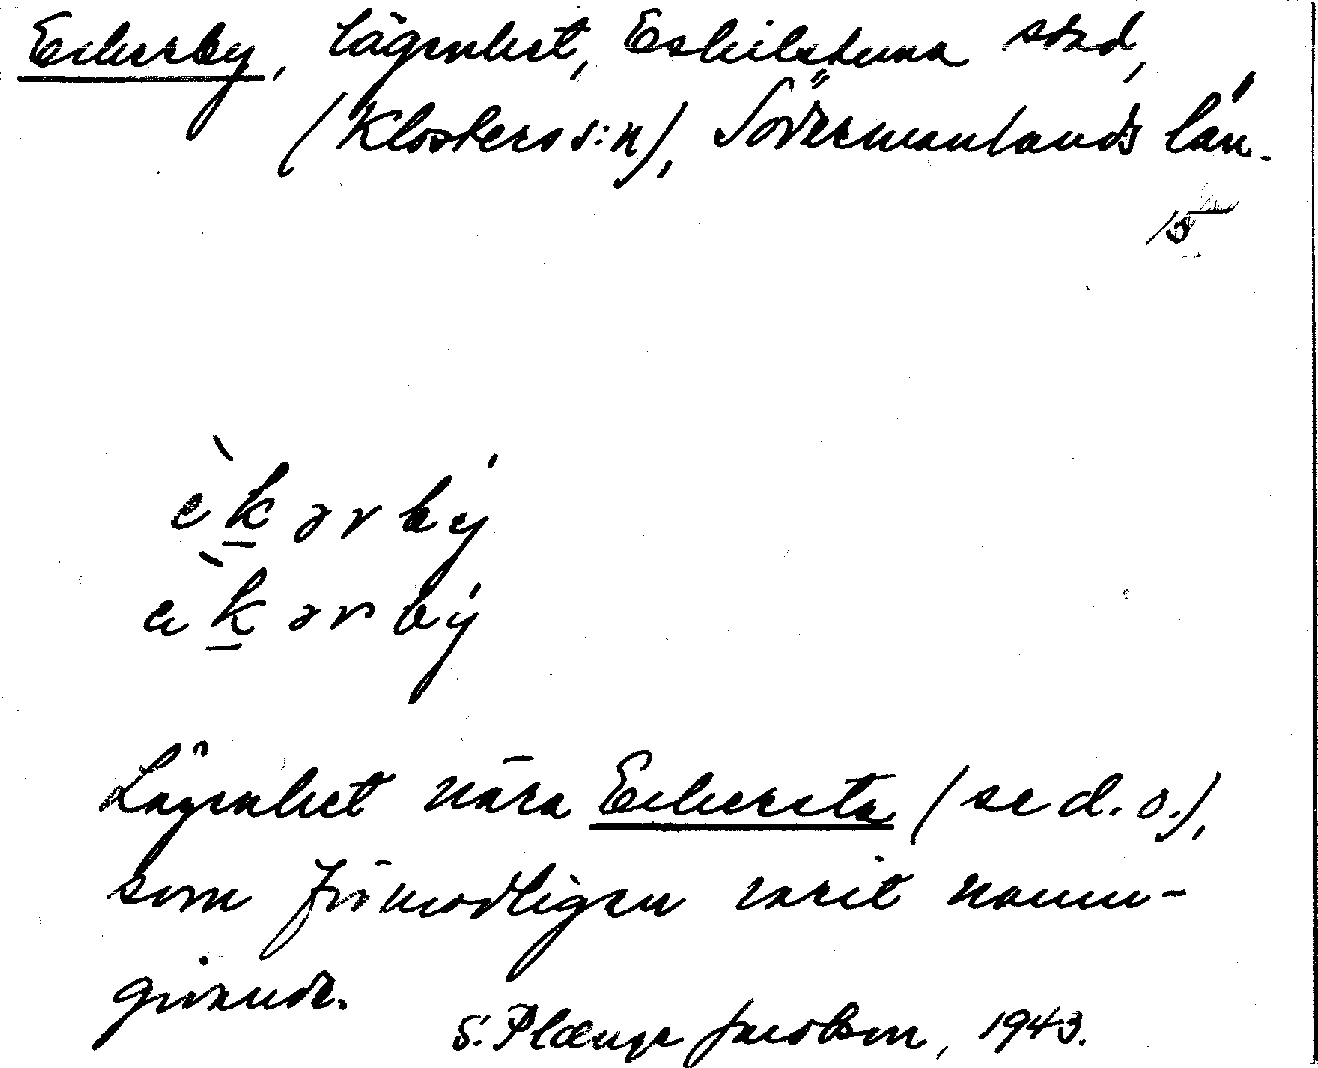 Ekerby, lägenhet, Eskilstuna stad,
(Klosters s:n), Södermanlands län.
15
èkərbý
èkərbý
Lägenhet nära Ekersta (se d. o.),
som förmodligen varit namn-
givande.
S. Plænge Jacobson, 1943.